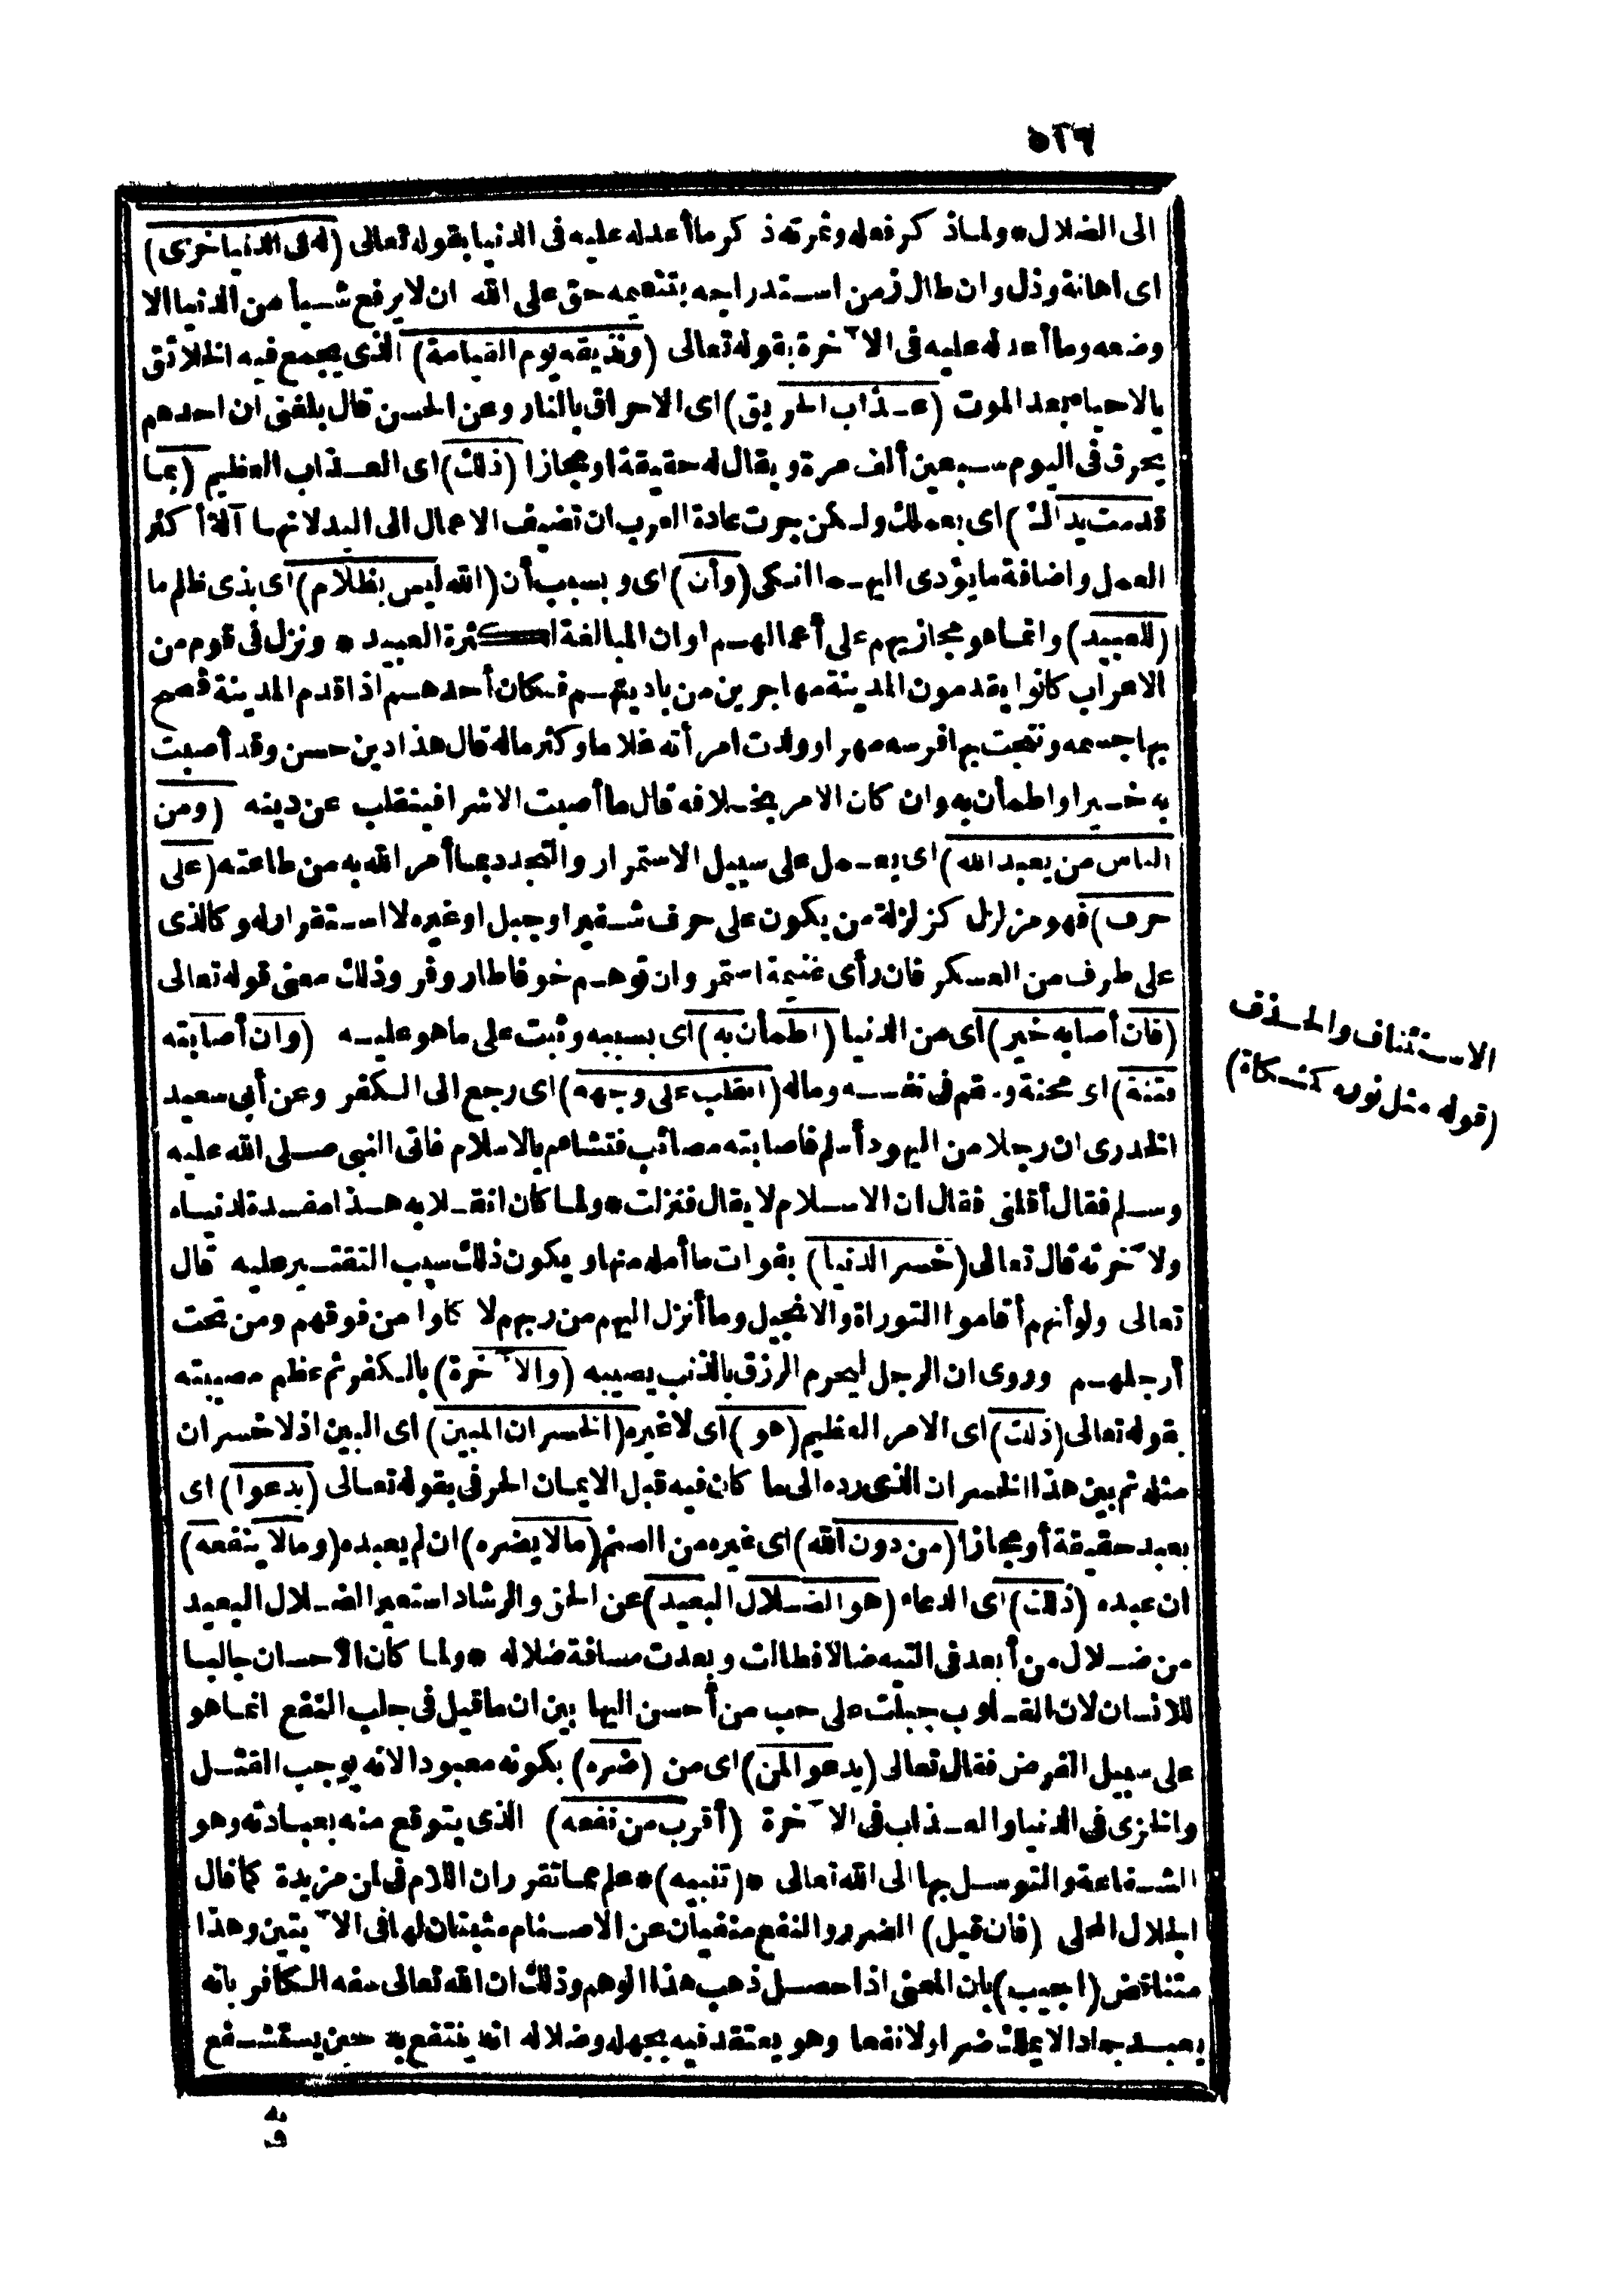 ٥٦٣
الى الضلال * ولما ذكر فعله وثمرته ذكر ما أعد له عليه فى الدنيا بقوله تعالى (له فى الدنيا خزى)
اى اهانة وذل وان طال زمن استدراجه بتنعيمه حق على الله ان لا يرفع شيأ من الدنيا الا
وضعه وما أعد له عليه فى الآخرة بقوله تعالى (ونذيقه يوم القيامة) الذى يجمع فيه الخلائق
بالاحياء بعد الموت (عذاب الحريق) اى الاحراق بالنار وعن الحسن قال بلغنى ان احدهم
يحرق فى اليوم سبعين ألف مرة ويقال له حقيقة او مجازا (ذلك) اى العذاب العظيم (بما
قدمت يداك) اى بعملك ولكن جرت عادة العرب ان تضيف الاعمال الى اليد لانها آلة أكثر
العمل واضافة ما يؤدى اليه ما انكى (وأن) اى وبسبب أن (الله ليس بظلام) اى بذى ظلم ما
(للعبيد) وانما هو مجازيهم على أعمالهم او ان المبالغة لكثرة العبيد * ونزل فى قوم من
الاعراب كانوا يقدمون المدينة مهاجرين من باديتهم فكان أحدهم اذا قدم المدينة فصح
بها جسمه ونتجت بها فرسه مهرا وولدت امرأته غلاما وكثر ماله قال هذا دين حسن وقد أصبت
به خيرا واطمأن به وان كان الامر بخلافه قال ما أصبت الا شرا فينقلب عن دينه (ومن
الناس من يعبد الله) اى يعمل على سبيل الاستمرار والتجدد بما أمر الله به من طاعته (على
حرف) فهو مزلزل كزلزلة من يكون على حرف شفير او جبل او غيره لا استقرار له وكالذى
على طرف من العسكر فان رأى غنيمة استمر وان توهم خوفا طار وفر وذلك معنى قوله تعالى
(فان أصابه خير) اى من الدنيا (اطمأن به) اى بسببه وثبت على ما هو عليه (وان أصابته
فتنة) اى محنة وسقم فى نفسه وماله (انقلب على وجهه) اى رجع الى الكفر وعن أبى سعيد
الخدرى ان رجلا من اليهود أسلم فاصابته مصائب فتشاءم بالاسلام فاتى النبى صلى الله عليه
وسلم فقال أقلنى فقال ان الاسلام لا يقال فنزلت * ولما كان انقلابه هذا مفسدة لدنياه
ولآخرته قال تعالى (خسر الدنيا) بفوات ما أمله منها ويكون ذلك سبب التقتير عليه قال
تعالى ولو أنهم أقاموا التوراة والانجيل وما أنزل اليهم من ربهم لا كلوا من فوقهم ومن تحت
أرجلهم وروى ان الرجل ليحرم الرزق بالذنب يصيبه (والآخرة) بالكفر ثم عظم مصيبته
بقوله تعالى (ذلك) اى الامر العظيم (هو) اى لا غيره (الخسران المبين) اى البين اذ لا خسران
مثله ثم بين هذا الخسران الذى رده الى ما كان فيه قبل الايمان الحرفى بقوله تعالى (يدعوا) اى
يعبد حقيقة أو مجازا (من دون الله) اى غيره من الصنم (ما لا يضره) ان لم يعبده (وما لا ينفعه)
ان عبده (ذلك) اى الدعاء (هو الضلال البعيد) عن الحق والرشاد استعير الضلال البعيد
من ضلال من أبعد فى التيه ضالا فطالت وبعدت مسافة ضلاله * ولما كان الاحسان جالبا
للانسان لان القلوب جبلت على حب من أحسن اليها بين ان ما قيل فى جلب النفع انما هو
على سبيل الفرض فقال تعالى (يدعو المن) اى من (ضره) بكونه معبودا لانه يوجب القتل
والخزى فى الدنيا والعذاب فى الآخرة (أقرب من نفعه) الذى يتوقع منه بعبادته وهو
الشفاعة والتوسل بها الى الله تعالى * (تنبيه) * علم مما تقرر ان اللام فى لمن مزيدة كما قال
الجلال المحلى (فان قيل) الضرر والنفع منفيان عن الاصنام مثبتان لها فى الآيتين وهذا
متناقض (اجيب) بان المعنى اذا حصل ذهب هذا الوهم وذلك ان الله تعالى سفه الكافر بانه
يعبد جمادا لا يملك ضرا ولا نفعا وهو يعتقد فيه بجهله وضلاله انه ينتفع به حين يستشفع
به
الاستئناف والحذف
(قوله مثل نوره كمشكاة)